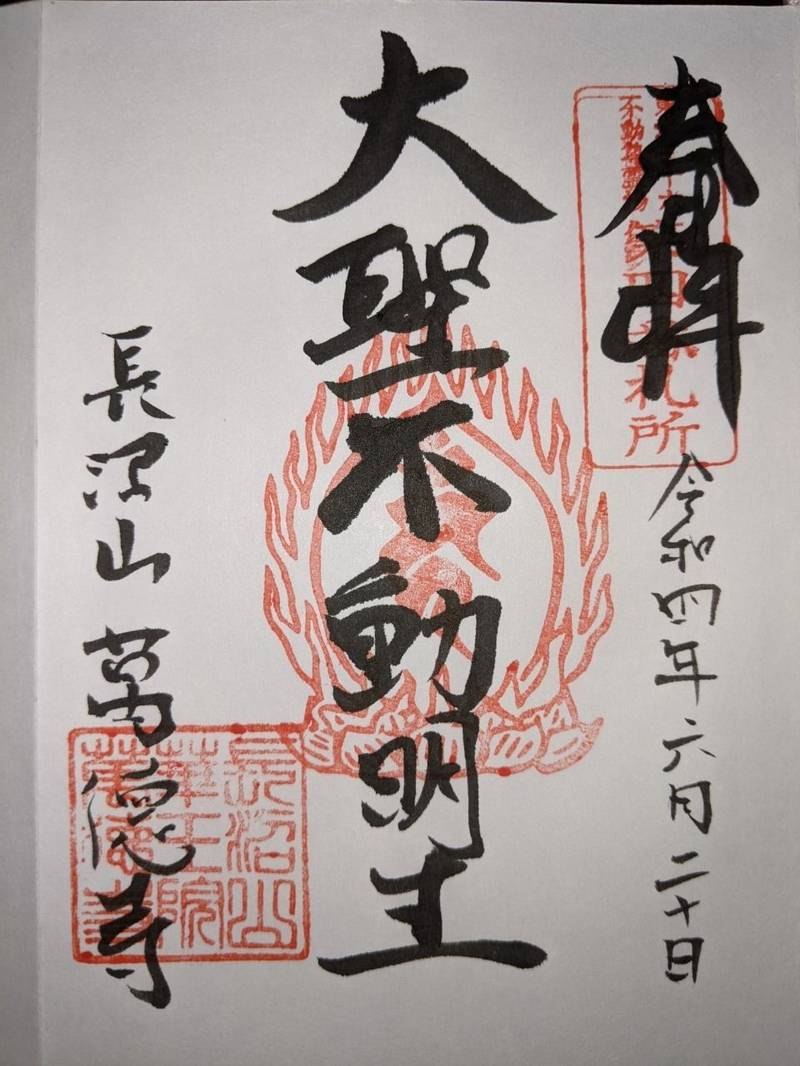 奉拝
不動尊霊場
札所
令和四年六月二十日
大聖不動明王
長沼山
華王院
萬徳寺
長沼山 萬徳寺